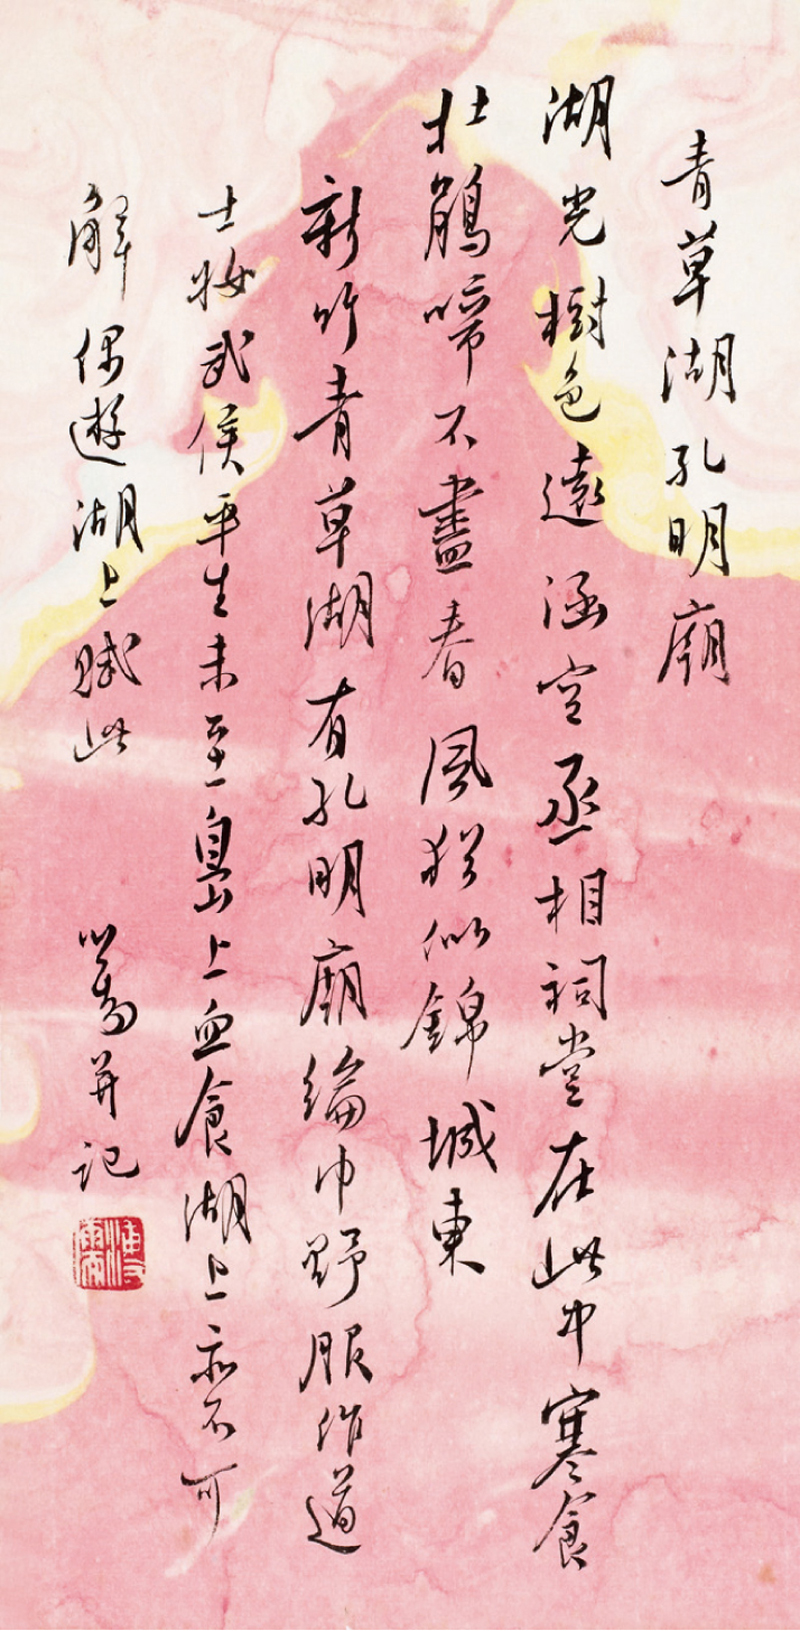 青草湖孔明廟
湖光樹色遠涵空丞相祠堂在此中寒食
杜鵑啼不盡春風猶似錦城東
新竹青草湖有孔明廟綸巾野服作道
士妝武侯平生未至島上血食湖上亦不可
解偶遊湖上賦此 心畬并記
溥儒